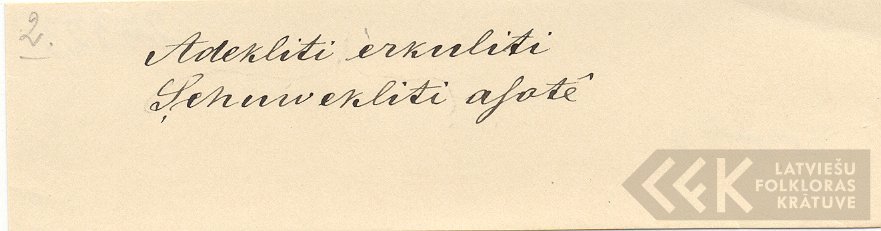 2.
Adekliti ėrkuliti
Şchuwekliti aſotê
LATVIEŠU
FOLKLORAS
KRĀTUVE